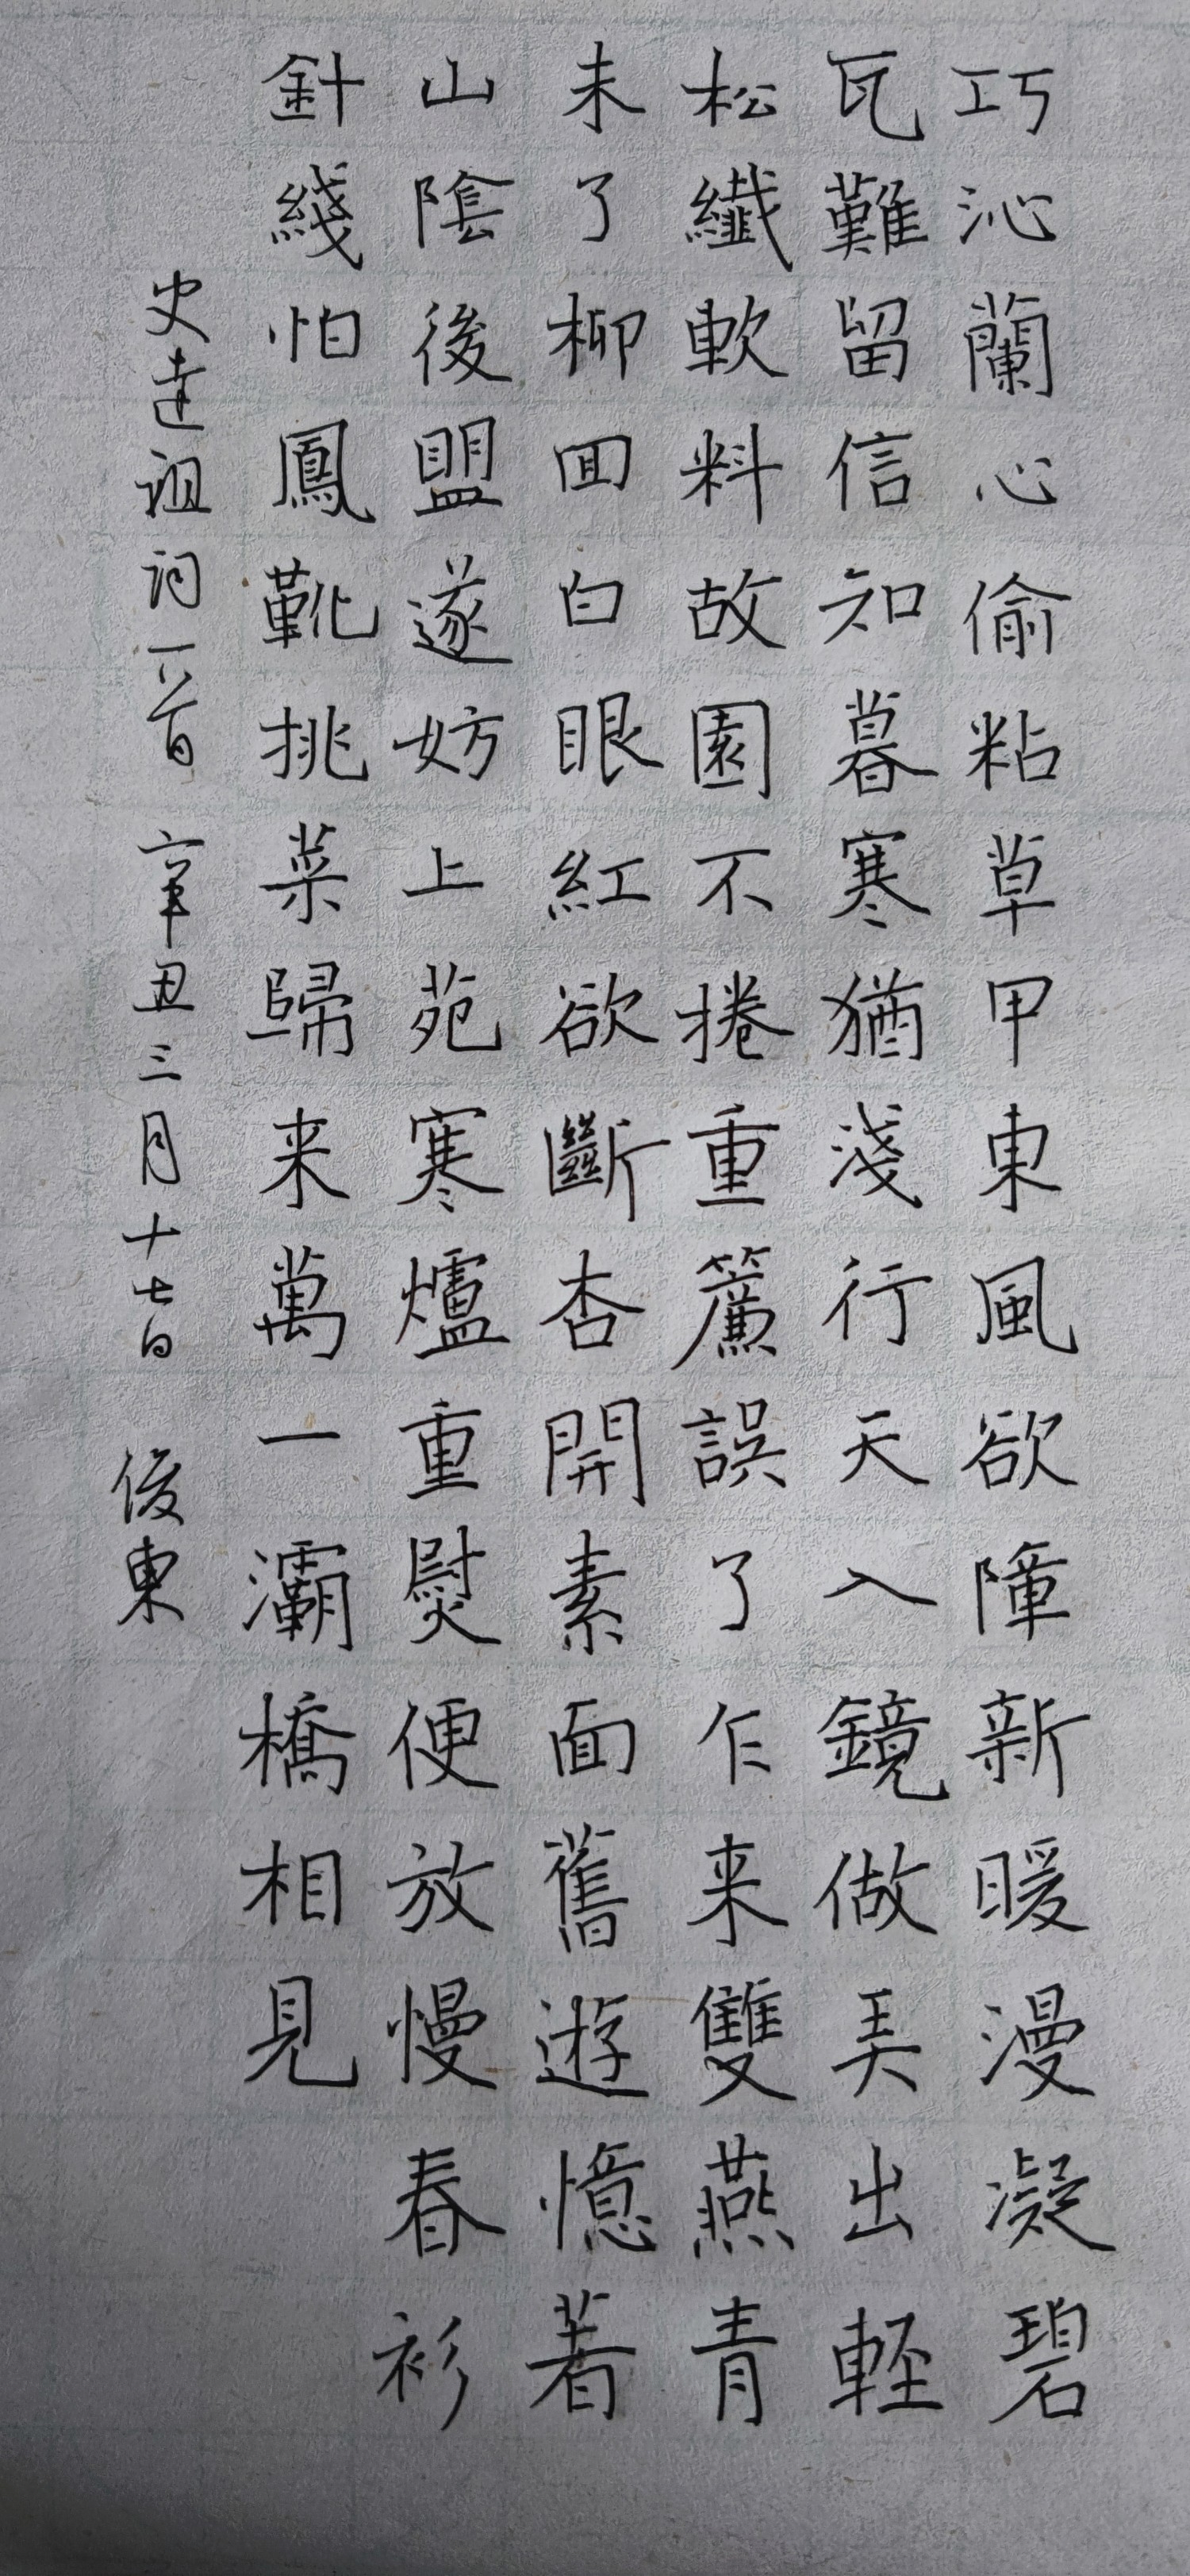 巧沁蘭心偷粘草甲東風欲障新暖漫凝碧
瓦難留信知暮寒猶淺行天入鏡做弄出輕
松纖軟料故園不捲重簾誤了乍来雙燕青
未了柳囬白眼紅欲斷杏開素面舊遊憶著
山陰後盟遂妨上苑寒爐重熨便放慢春衫
針綫怕鳳靴挑菜歸来萬一灞橋相見
史達祖詞一首 辛丑三月十七日 俊東